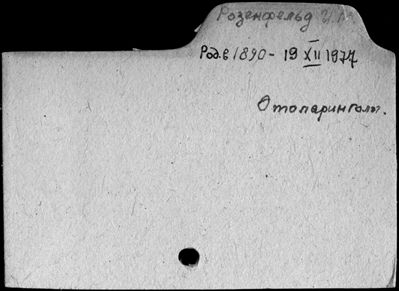 Розенфельд И.М.
Род. в 1890 - 19 XII 1977
Отоларинголог.